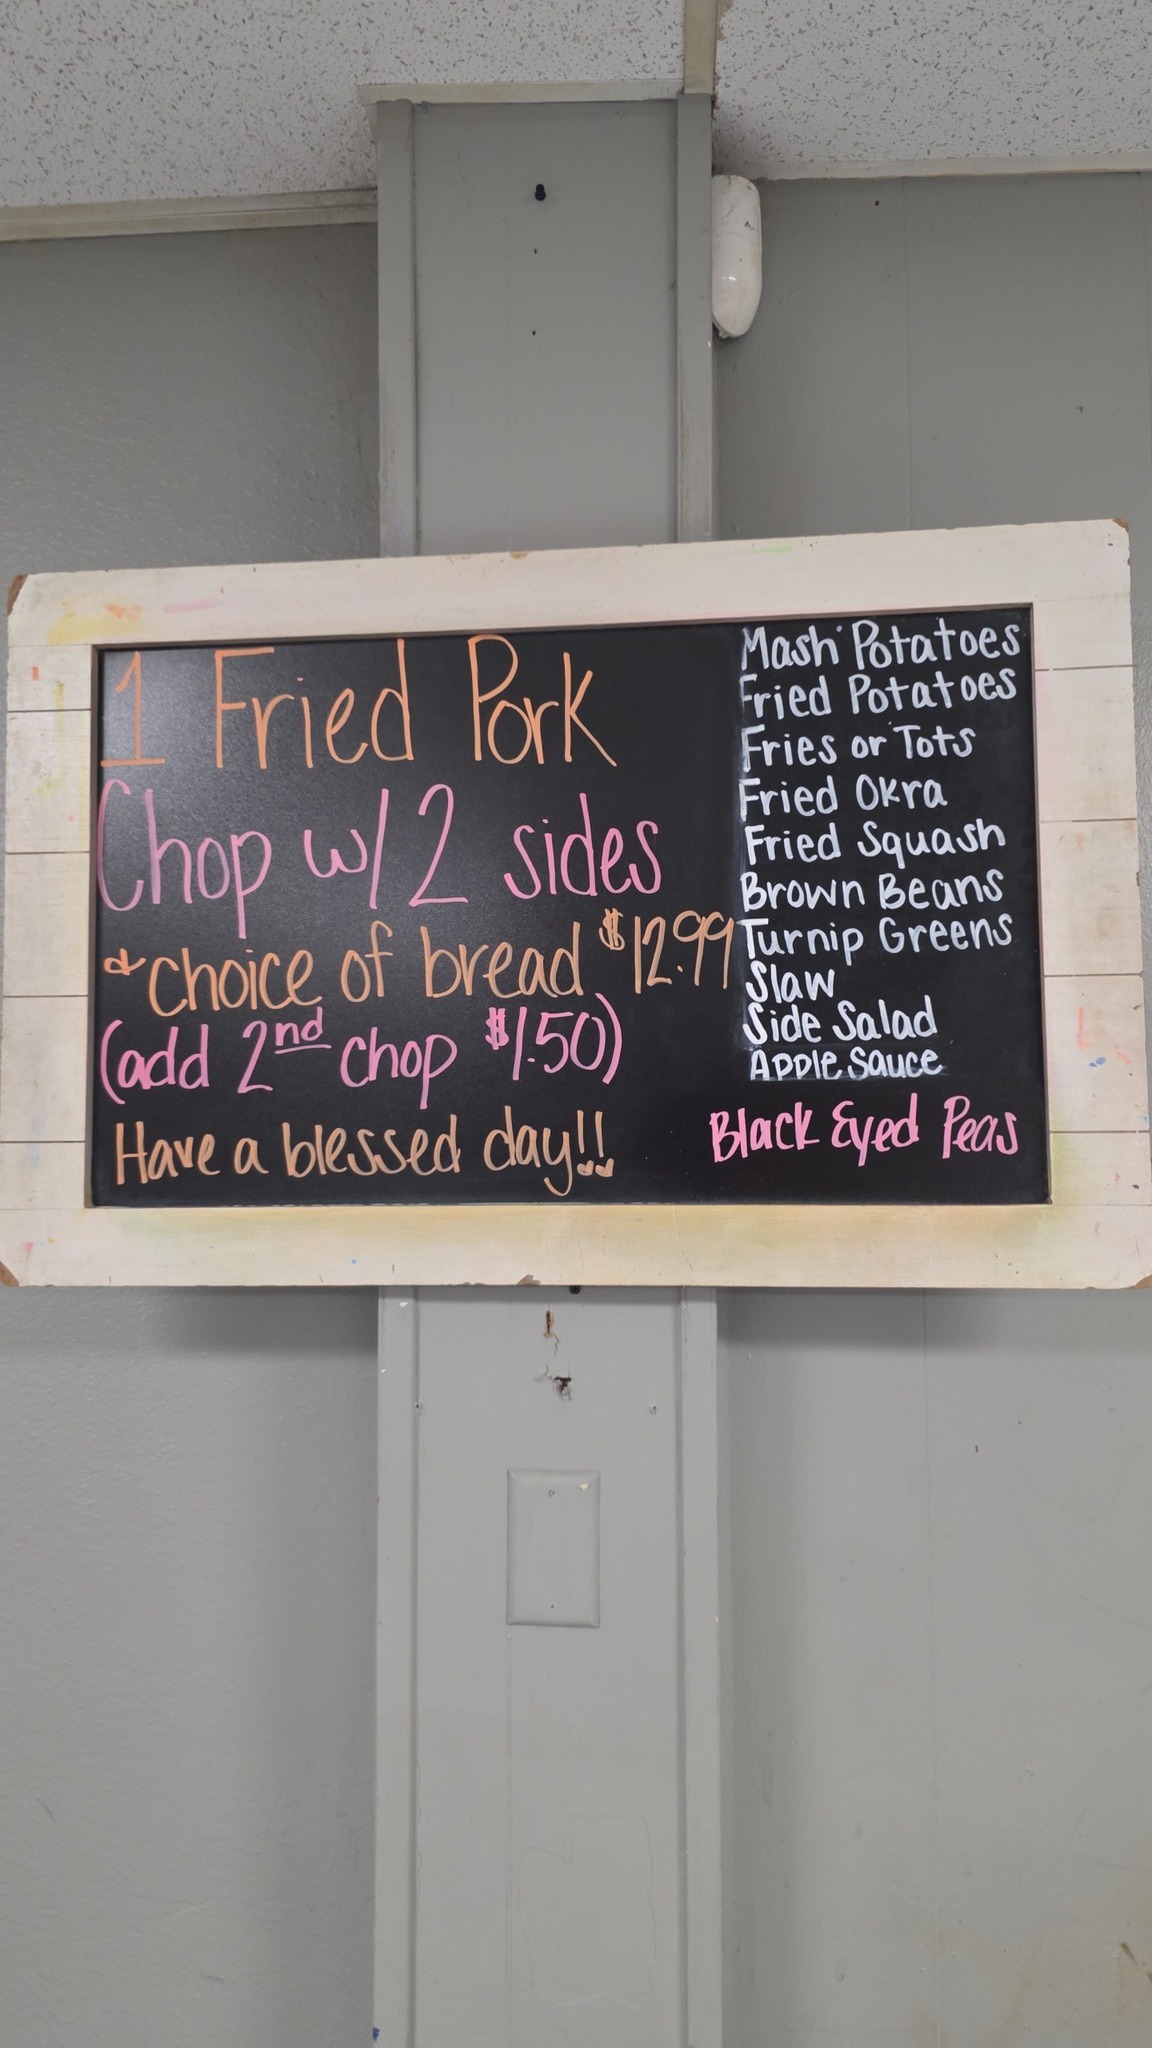 1 Fried Pork
Chop w/ 2 sides
& choice of bread $12.99
(add 2nd chop $1.50)
Have a blessed day!!
Mash Potatoes
Fried Potatoes
Fries or Tots
Fried Okra
Fried Squash
Brown Beans
Turnip Greens
Slaw
Side Salad
Apple Sauce
Black Eyed Peas